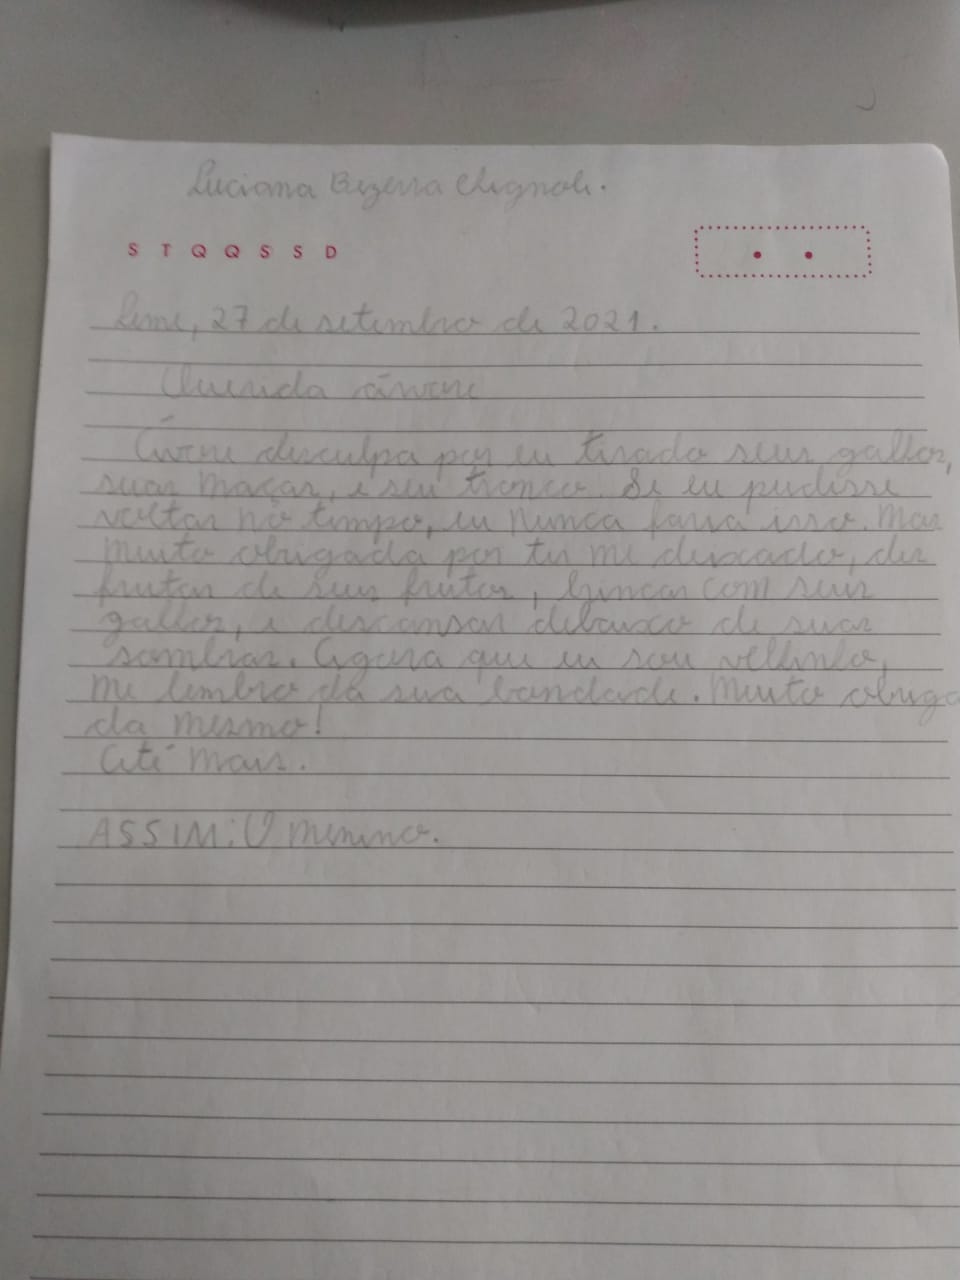 Luciana Bezerra
S T Q Q S S D
Leme, 27 de setembro de 2021.
Querida árvore
Árvore desculpa por eu tirado seus galhos,
suas maças, e seu tronco. Se eu pudesse
voltar no tempo, eu nunca faria isso. Mas
muito obrigada por ter me deixado, des
frutar de seus frutos, brincar com seus
galhos, e descansar debaixo de suas
sombras. Agora que eu sou velhinho,
me lembro da sua bondade. Muito obriga
da mesmo!
Até mais.
ASSIM: O menino.